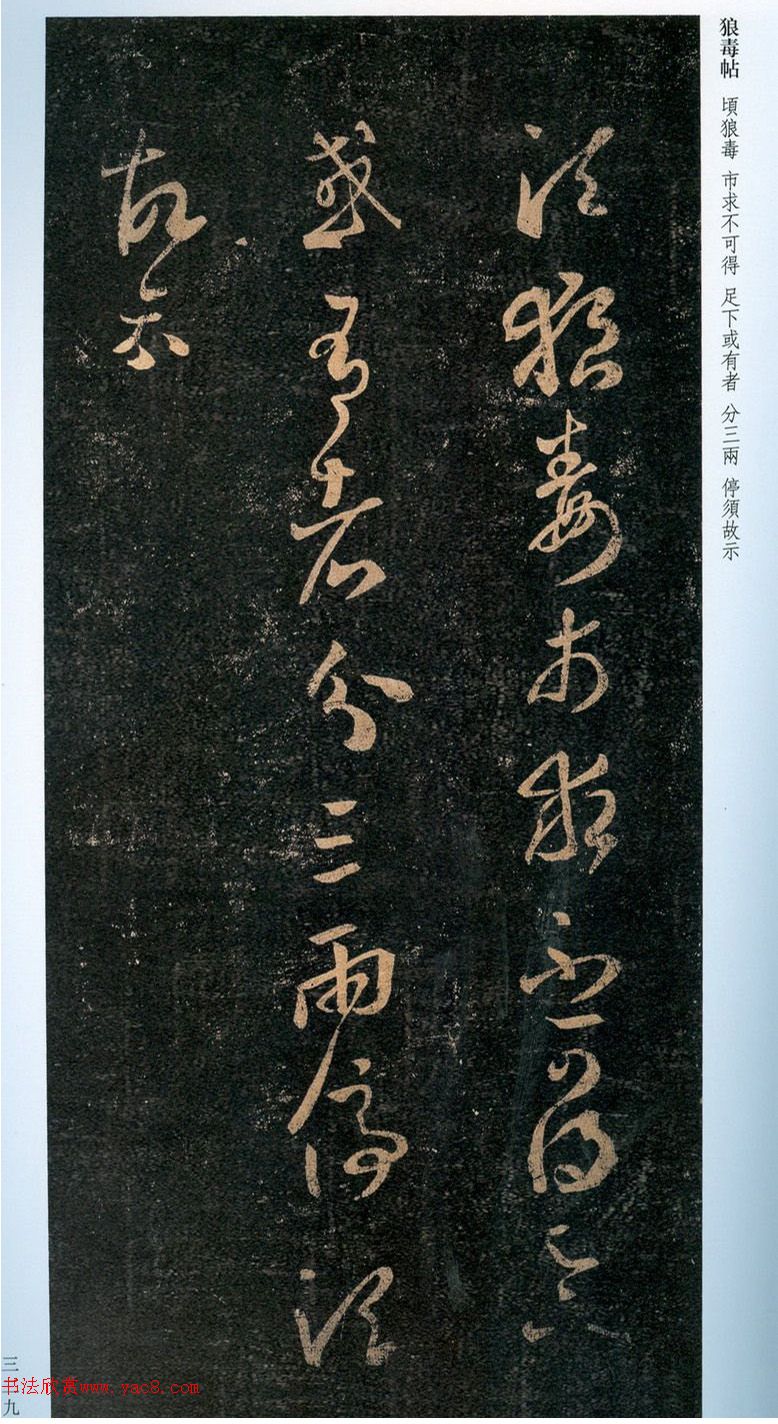 狼毒帖 頃狼毒 市求不可得 足下或有者 分三兩 停須故示
頃狼毒市求不可得足下
或有者分三兩停須
故示
三
九
书法欣赏www.yac8.com